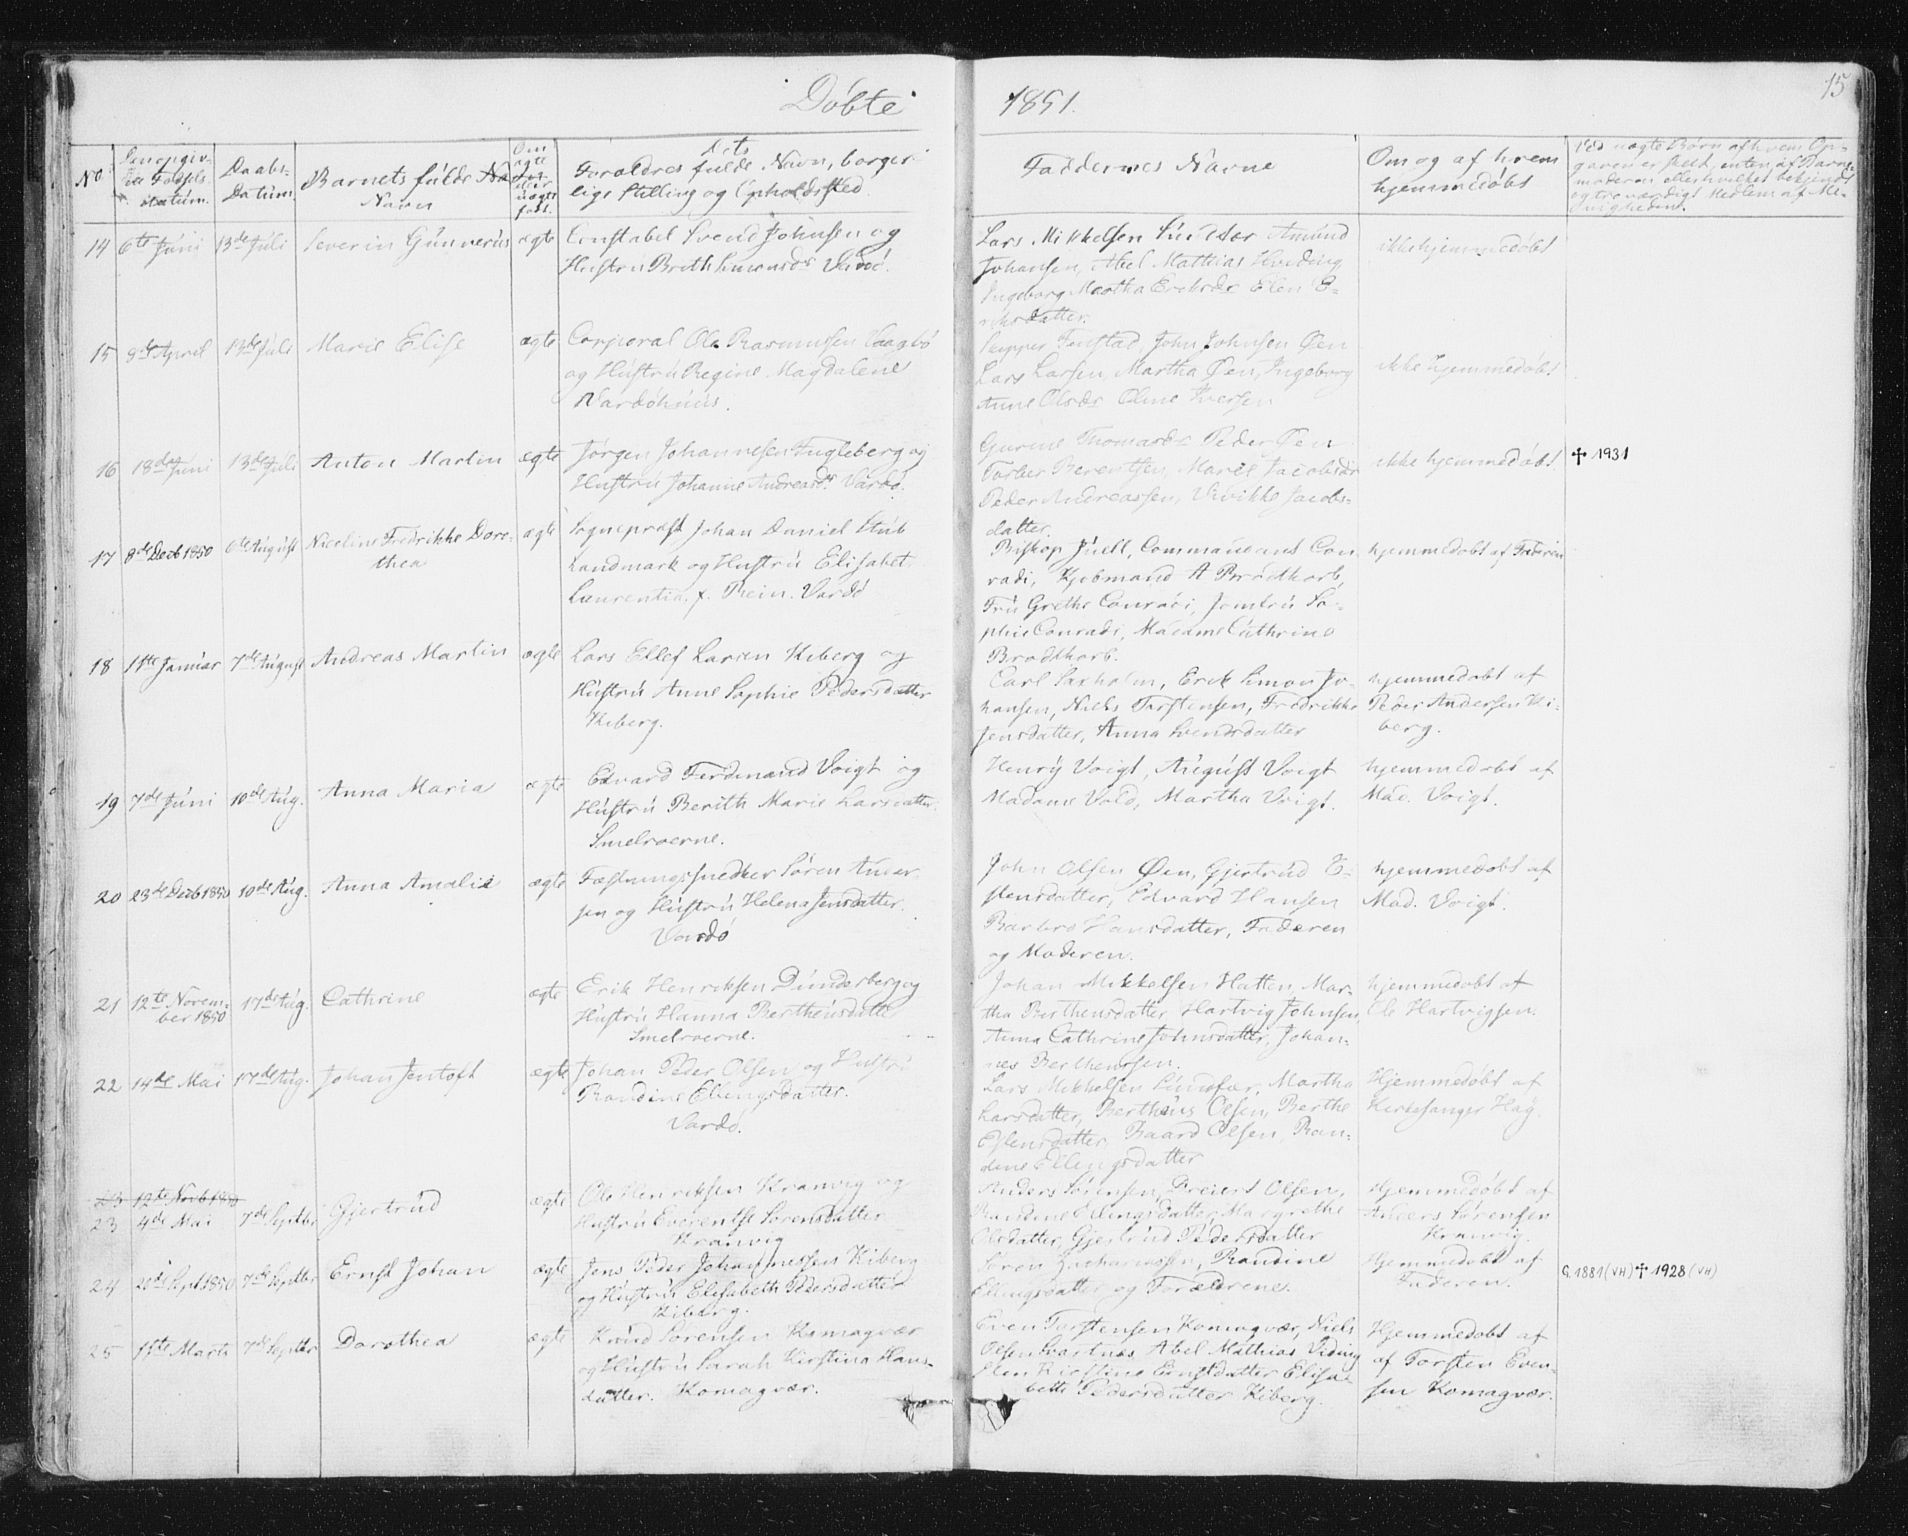 Döbte
1851.
15
No
Den opgiv-
ne Fødsels
datum.
Daabs-
Datum.
Barnets fulde
Navn
Om
ægte
eller
uægte
født.
Forældres fulde Navn, borger-
lige Stilling og Opholdssted.
Faddernes Navne
Om og af hvem
hjemmedöbt
Ved uægte Børn af hvem Op-
gaven er skeet, enten af Barne-
moderen eller hvilket bekjendt
og troværdigt Medlem af Me-
nigheden.
14 6te Juni 13de Juli Severin Gunnerus ægte
Constabel Svend Johnsen og
Hustru Brith Simonsdr Vardö.
Lars Mikkelsen Amund
Johansen, Abel Mathias Hviding
Ingeborg Martha Elen E-
riksdatter.
ikke hjemmedöbt
15 8de April 13de Juli Marie Elise ægte
Corporal Ole Rasmusen Vaagbö
og Hustru Regine Magdalene
Vardöhuus.
Skipper Finstad, John Johnsen Øen
Lars Larsen, Martha Øen, Ingeborg
Anne Olsdr Oline Iversen
ikke hjemmedöbt
16 18de Juni 13de Juli Anton Martin ægte
Jørgen Johannesen Fugleberg og
Hustru Johanne Andreasdr Vardö.
Gurine Thomasdr Peder Øen
Berentsen, Marie Jacobsdr
Peder Andreassen, Vivikke Jacobs-
datter.
ikke hjemmedöbt
✝ 1931
17 8de Decb 1850 6te August Nicoline Fredrikke Doro-
thea
ægte
Sognepræst Johan Daniel Stub
Landmark og Hustru Elisabet
Laurentia f. Rein. Vardö
Biskop Juell, Commandant Con
radi, Kjøbmand A Brodtkorb,
Fru Grethe Conradi, Jomfru So-
phie Conradi, Madame Cathrine
Brodtkorb.
hjemmedöbt af Faderen
18 11te Januar 7de August Andreas Martin ægte
Lars Ellef Larsen Kiberg og
Hustru Anne Sophie Pedersdatter
Kiberg.
Carl Saxholm, Erik Simon Jo-
hansen, Niels Torstensen, Fredrikke
Jensdatter, Anna Svendsdatter
hjemmedöbt af
Peder Andersen Ki-
berg.
19 7de Juni 10de Aug. Anna Maria ægte
Edvard Ferdinand Voigt og
Hustru Berith Marie Larsdatter
Smelrorne.
Henry Voigt, August Voigt
Madame Vold, Martha Voigt.
hjemmedöbt af
Mad. Voigt.
20 23de Decb 1850 10de Aug. Anna Amalie ægte
Fæstningssnedker Sören Ander
sen og Hustru Helena Jensdatter.
Vardö
John Olsen Øen, Gjertrud E-
stensdatter, Edvard Hansen
Barbro Hansdatter, Faderen
og Moderen.
hjemmedöbt af
Mad. Voigt.
21 12te Novem-
ber 1850
17de Aug. Cathrine ægte
Erik Henriksen Dunderberg og
Hustru Hanna Bertheusdatter
Smelroerne.
Johan Mikkelsen Hatten, Mar-
tha Bertheusdatter, Hartvig Johnsen,
Anna Cathrine Johnsdatter, Johan-
nes Bertheussen.
hjemmedöbt af
Ole Hartvigsen.
22 14de Mai 17de Aug. Johan Jentoft ægte
Johan Peder Olsen og Hustru
Randine Ellingsdatter.
Vardö.
Lars Mikkelsen Martha
Larsdatter, Bertheus Olsen, Berthe
Estensdatter, Baard Olsen, Ran-
dine Ellingsdatter
Hjemmedöbt af
Kirkesanger Hay.
23 12te Novb 1850
23 4de Mai 7de Septbr Gjertrud ægte
Ole Henriksen Kramvig og
Hustru Everentse Sörensdatter
Kramvig
Anders Sörensen, Dreiert Olsen,
Randine Ellingsdatter, Margrethe
Olsdatter, Gjertrud Pedersdatter
Hjemmedöbt af
Anders Sörensen
Kramvig.
24 Sept 1850 7de Septbr Ernst Johan ægte
Jens Peder Johannessen Kiberg
og Hustru Elisabeth Pedersdatter
Kiberg.
Sören Zachariassen, Randine
Ellingsdatter og Forældrene.
Hjemmedöbt af
Faderen.
G. 1881 (VH) ✝ 1928 (VH)
25 Marts 7de Septbr Dorothea ægte
Knud Sörensen Komagvær
og Hustru Sarah Kirstina Hans-
datter. Komagvær.
Even Torstensen Komagvær, Niels
Olsen Svartnæs Abel Mathias Viding
Elen Kirstine Ernstdatter Elisa-
beth Pedersdatter Kiberg.
Hjemmedöbt af
af Torsten Even-
sen Komagvær.